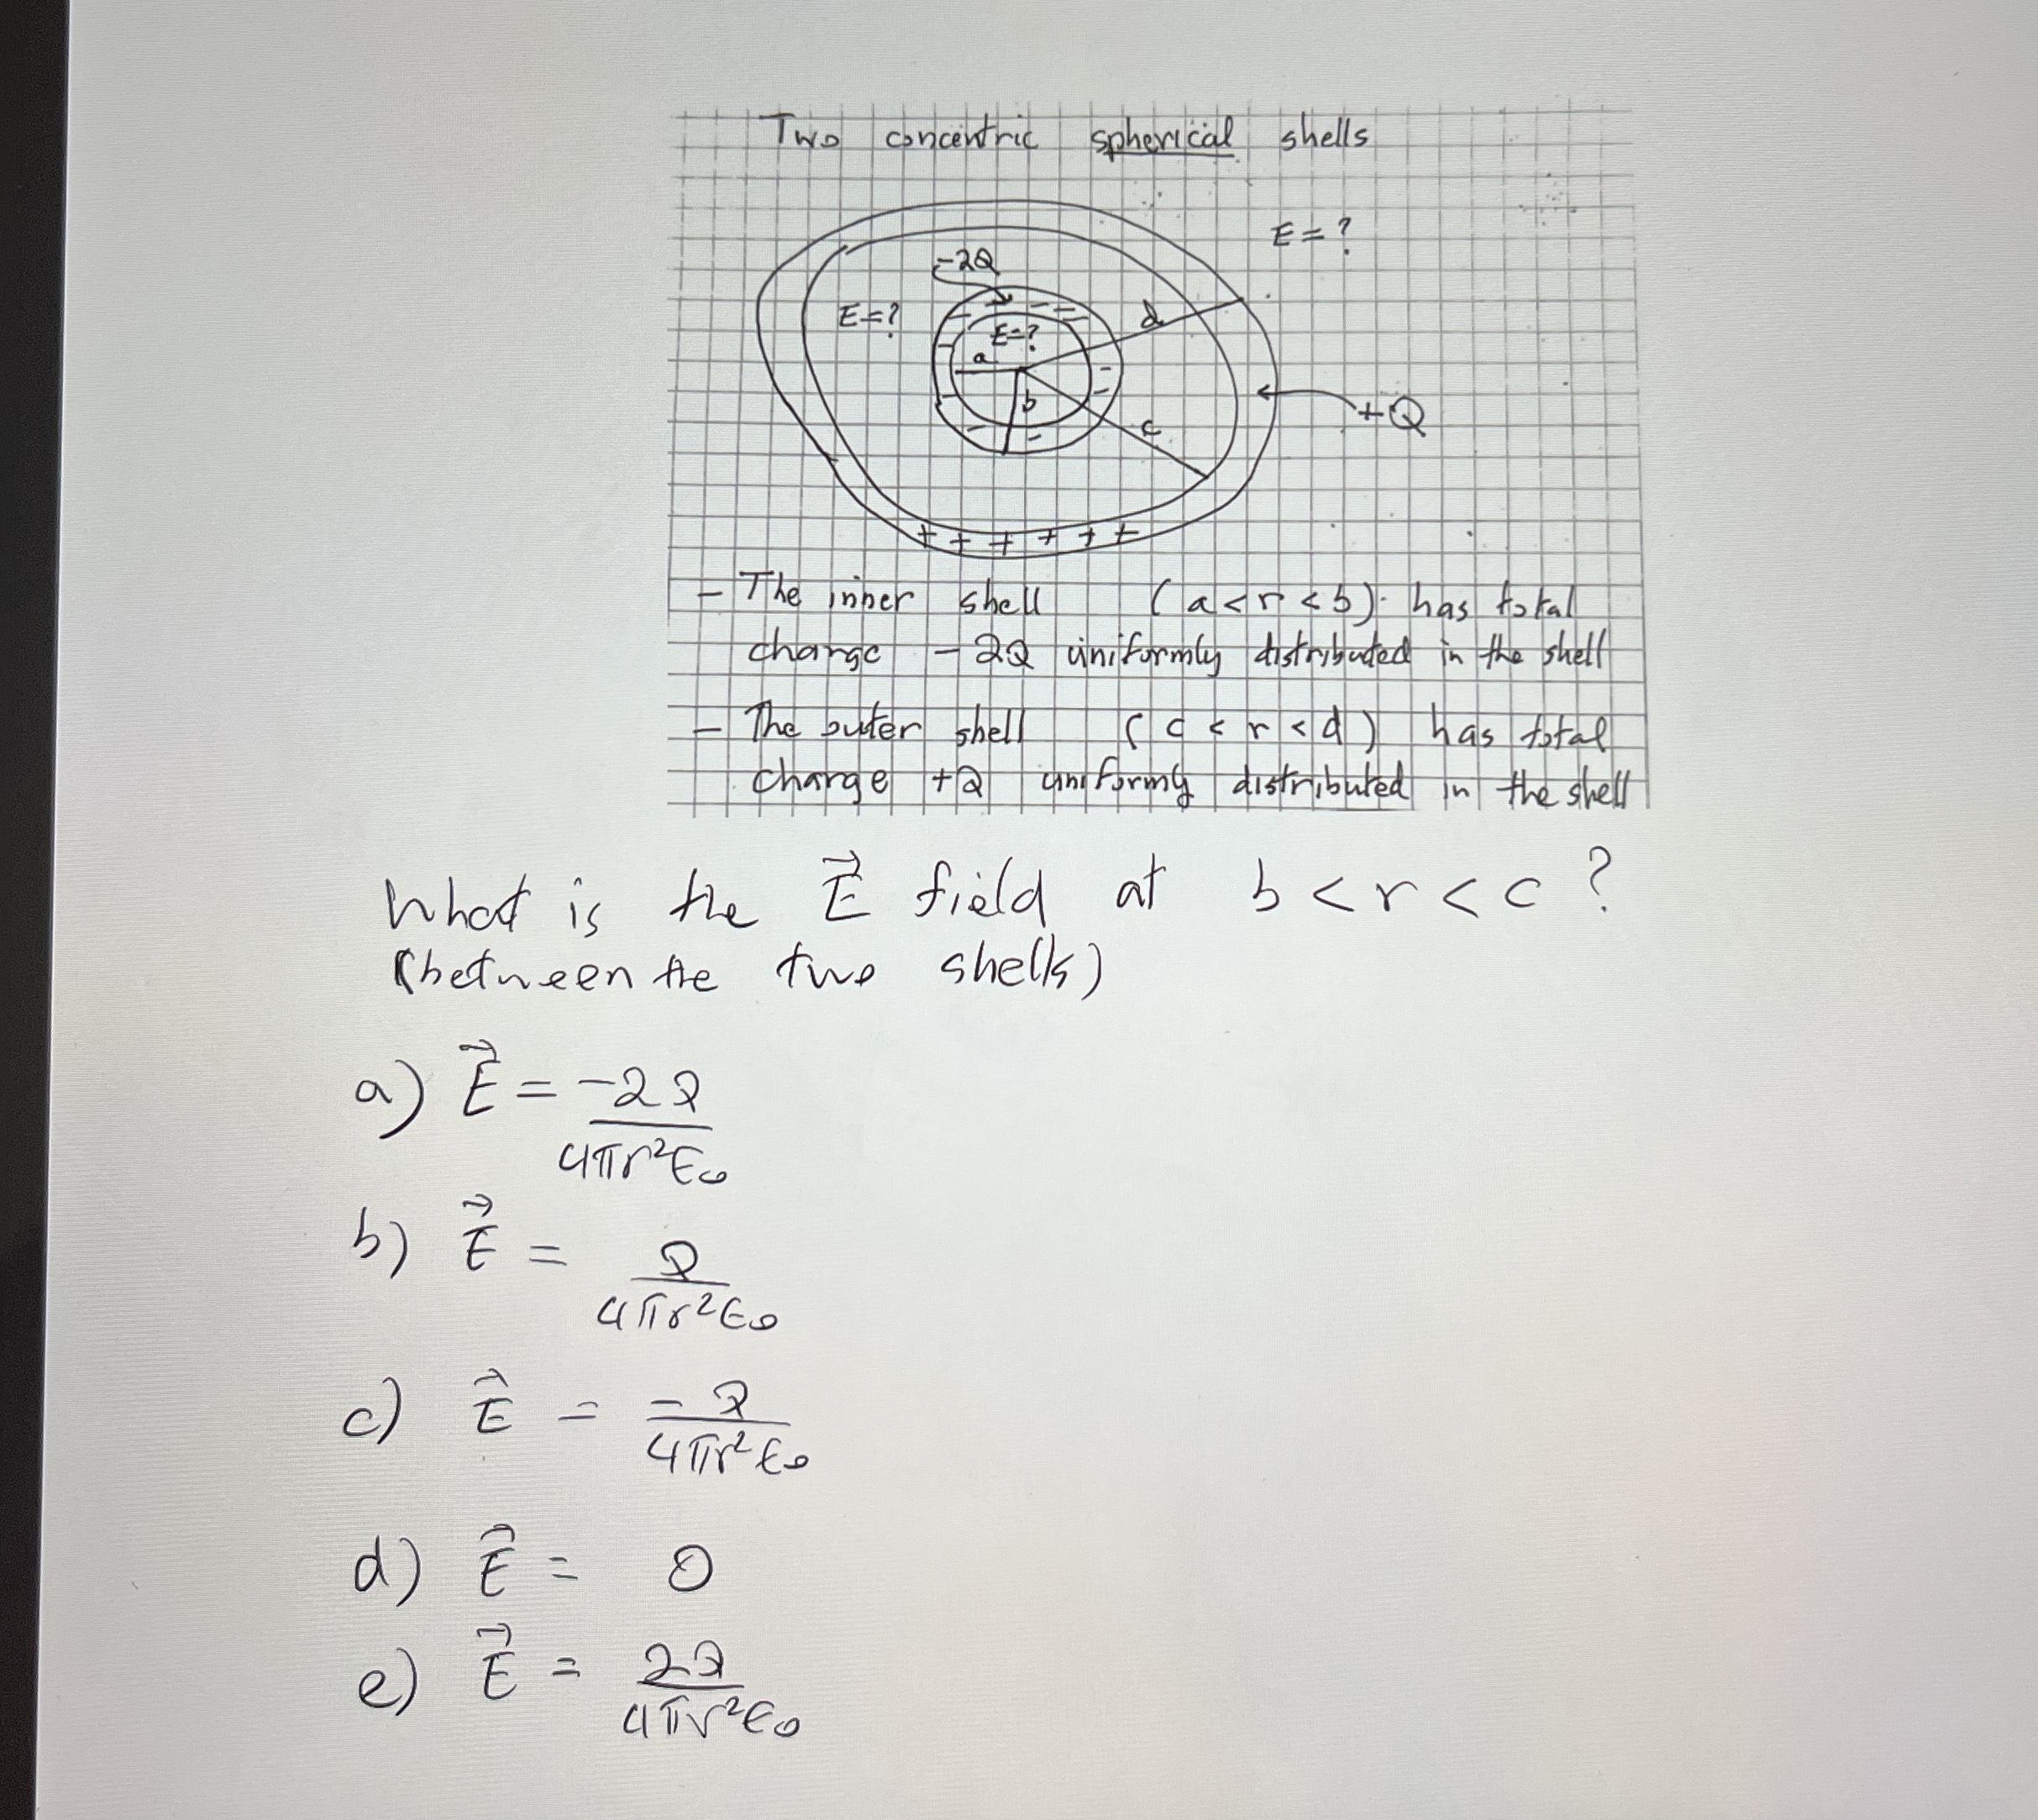 Two concentric spherical shells
E = ?
-2Q
E=?
E=?
d
a
b
c
+Q
+ + + + + +
- The inner shell (a<r<b) has total
charge -2Q uniformly distributed in the shell
- The outer shell (c<r<d) has total
charge +Q uniformy distributed in the shell
What is the E⃗ field at b<r<c ?
(between the two shells)
a) E⃗ = -2Q
4πr²ε₀
b) E⃗ = Q
4πr²ε₀
c) E⃗ = -Q
4πr²ε₀
d) E⃗ = 0
e) E⃗ = 2Q
4πr²ε₀